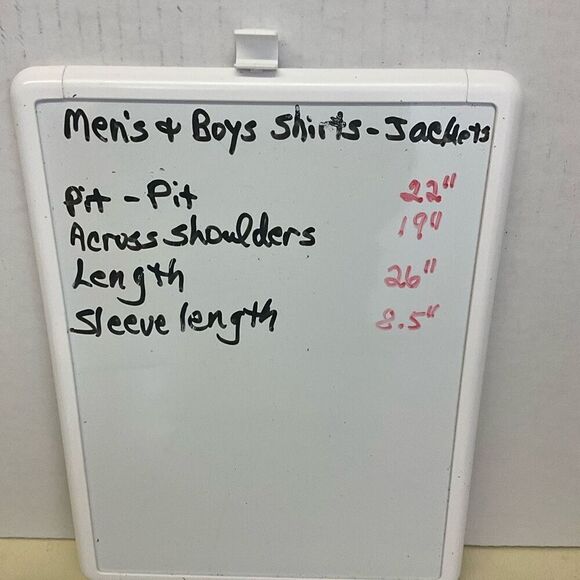 Men's & Boys Shirts - Jackets
Pit - Pit 22"
Across Shoulders 19"
Length 26"
Sleeve length 8.5"